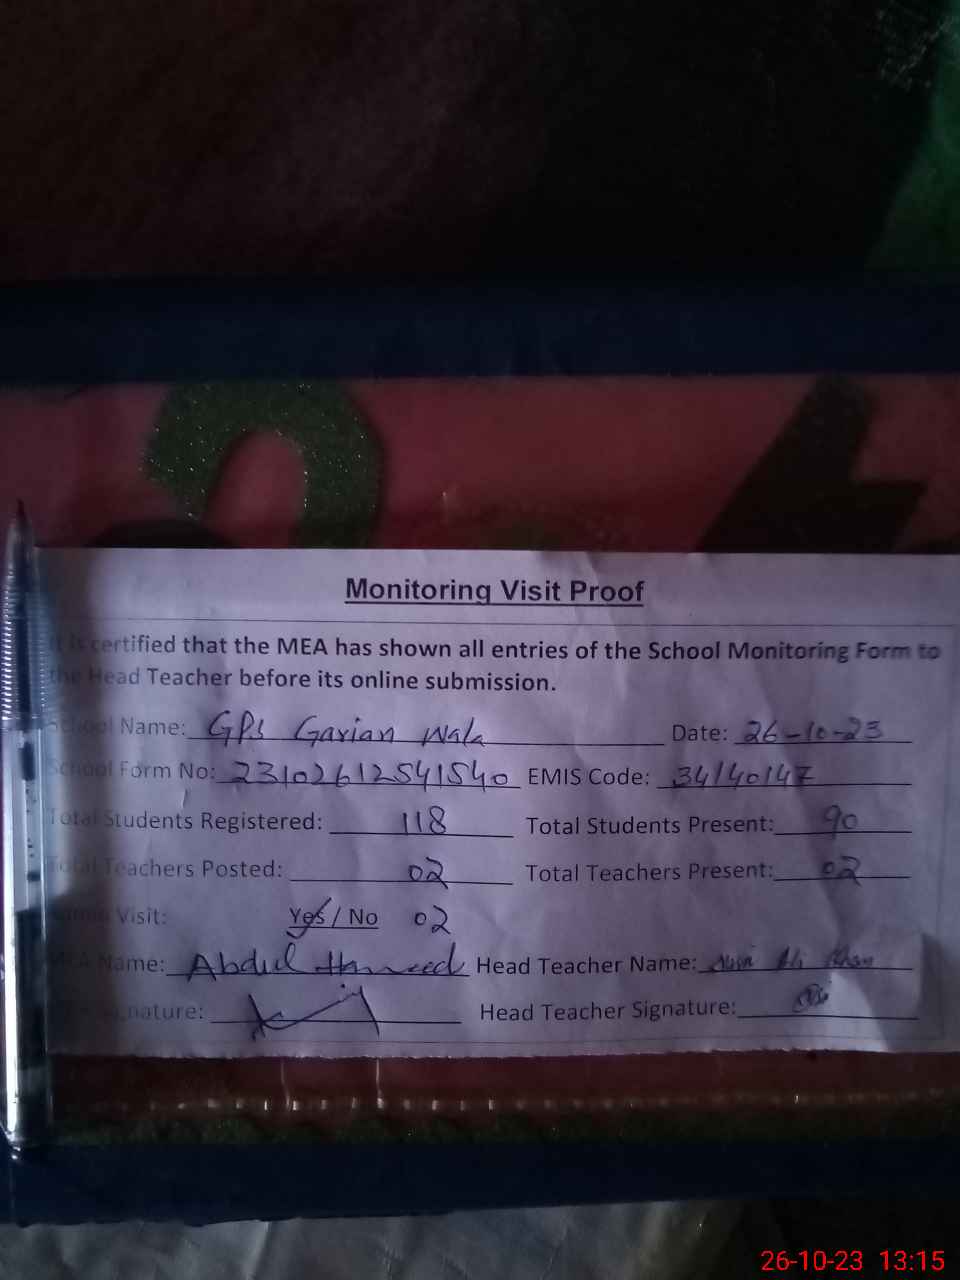 Monitoring Visit Proof
It is certified that the MEA has shown all entries of the School Monitoring Form to
the Head Teacher before its online submission.
School Name: GPS Garian Wala Date: 26-10-23
School Form No: 23102612541540 EMIS Code: 34140147
Total Students Registered: 118 Total Students Present: 90
Total Teachers Posted: 02 Total Teachers Present: 02
Visit: Yes / No 02
MEA Name: Abdul Hameed Head Teacher Name: Ali Khan
Signature: Head Teacher Signature:
26-10-23 13:15